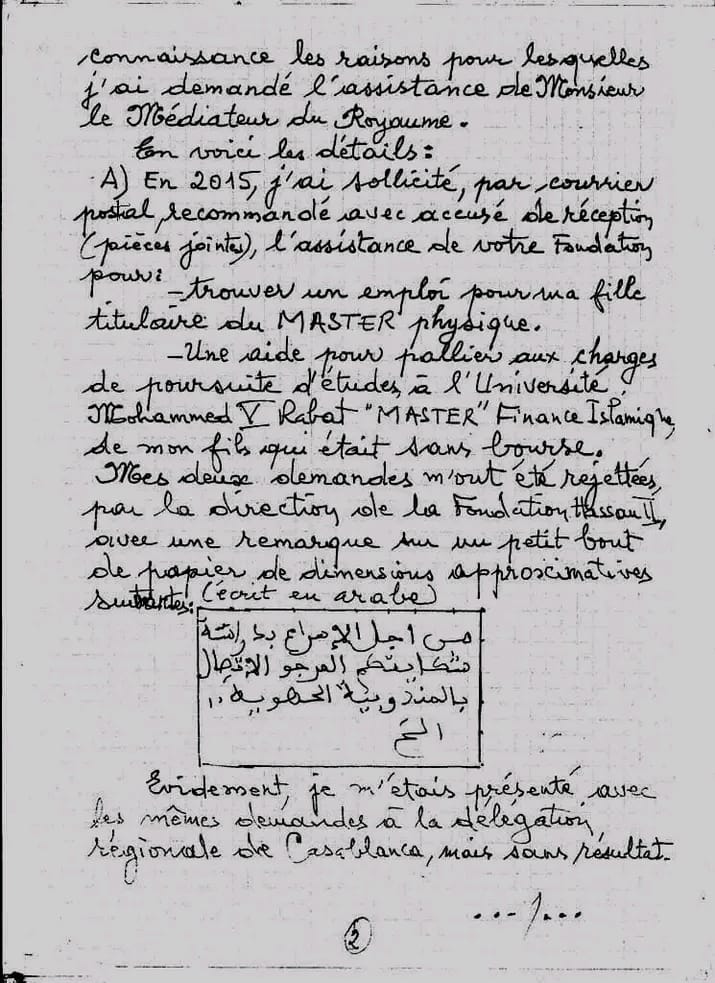 connaissance les raisons pour lesquelles
j'ai demandé l'assistance de Monsieur
le Médiateur du Royaume.
En voici les détails:
A) En 2015, j'ai sollicité, par courrier
postal, recommandé avec accusé de réception
(pièces jointes), l'assistance de votre Fondation
pour:
-trouver un emploi pour ma fille
titulaire du MASTER physique.
-Une aide pour pallier aux charges
de poursuite d'études, à l'Université
Mohammed V Rabat "MASTER" Finance Islamique,
de mon fils qui était sans bourse.
Mes deux demandes m'ont été rejettées,
par la direction de la Fondation Hassan II,
avec une remarque sur un petit bout
de papier de dimensions approximatives
suivantes: (écrit en arabe)
من اجل الإسراع بدراسة
شكايتكم المرجو الإتصال
بالمندوبية الجهوية ..
الخ
Evidement, je m'étais présenté avec
les mêmes demandes à la délégation
régionale de Casablanca, mais sans résultat.
.../...
2